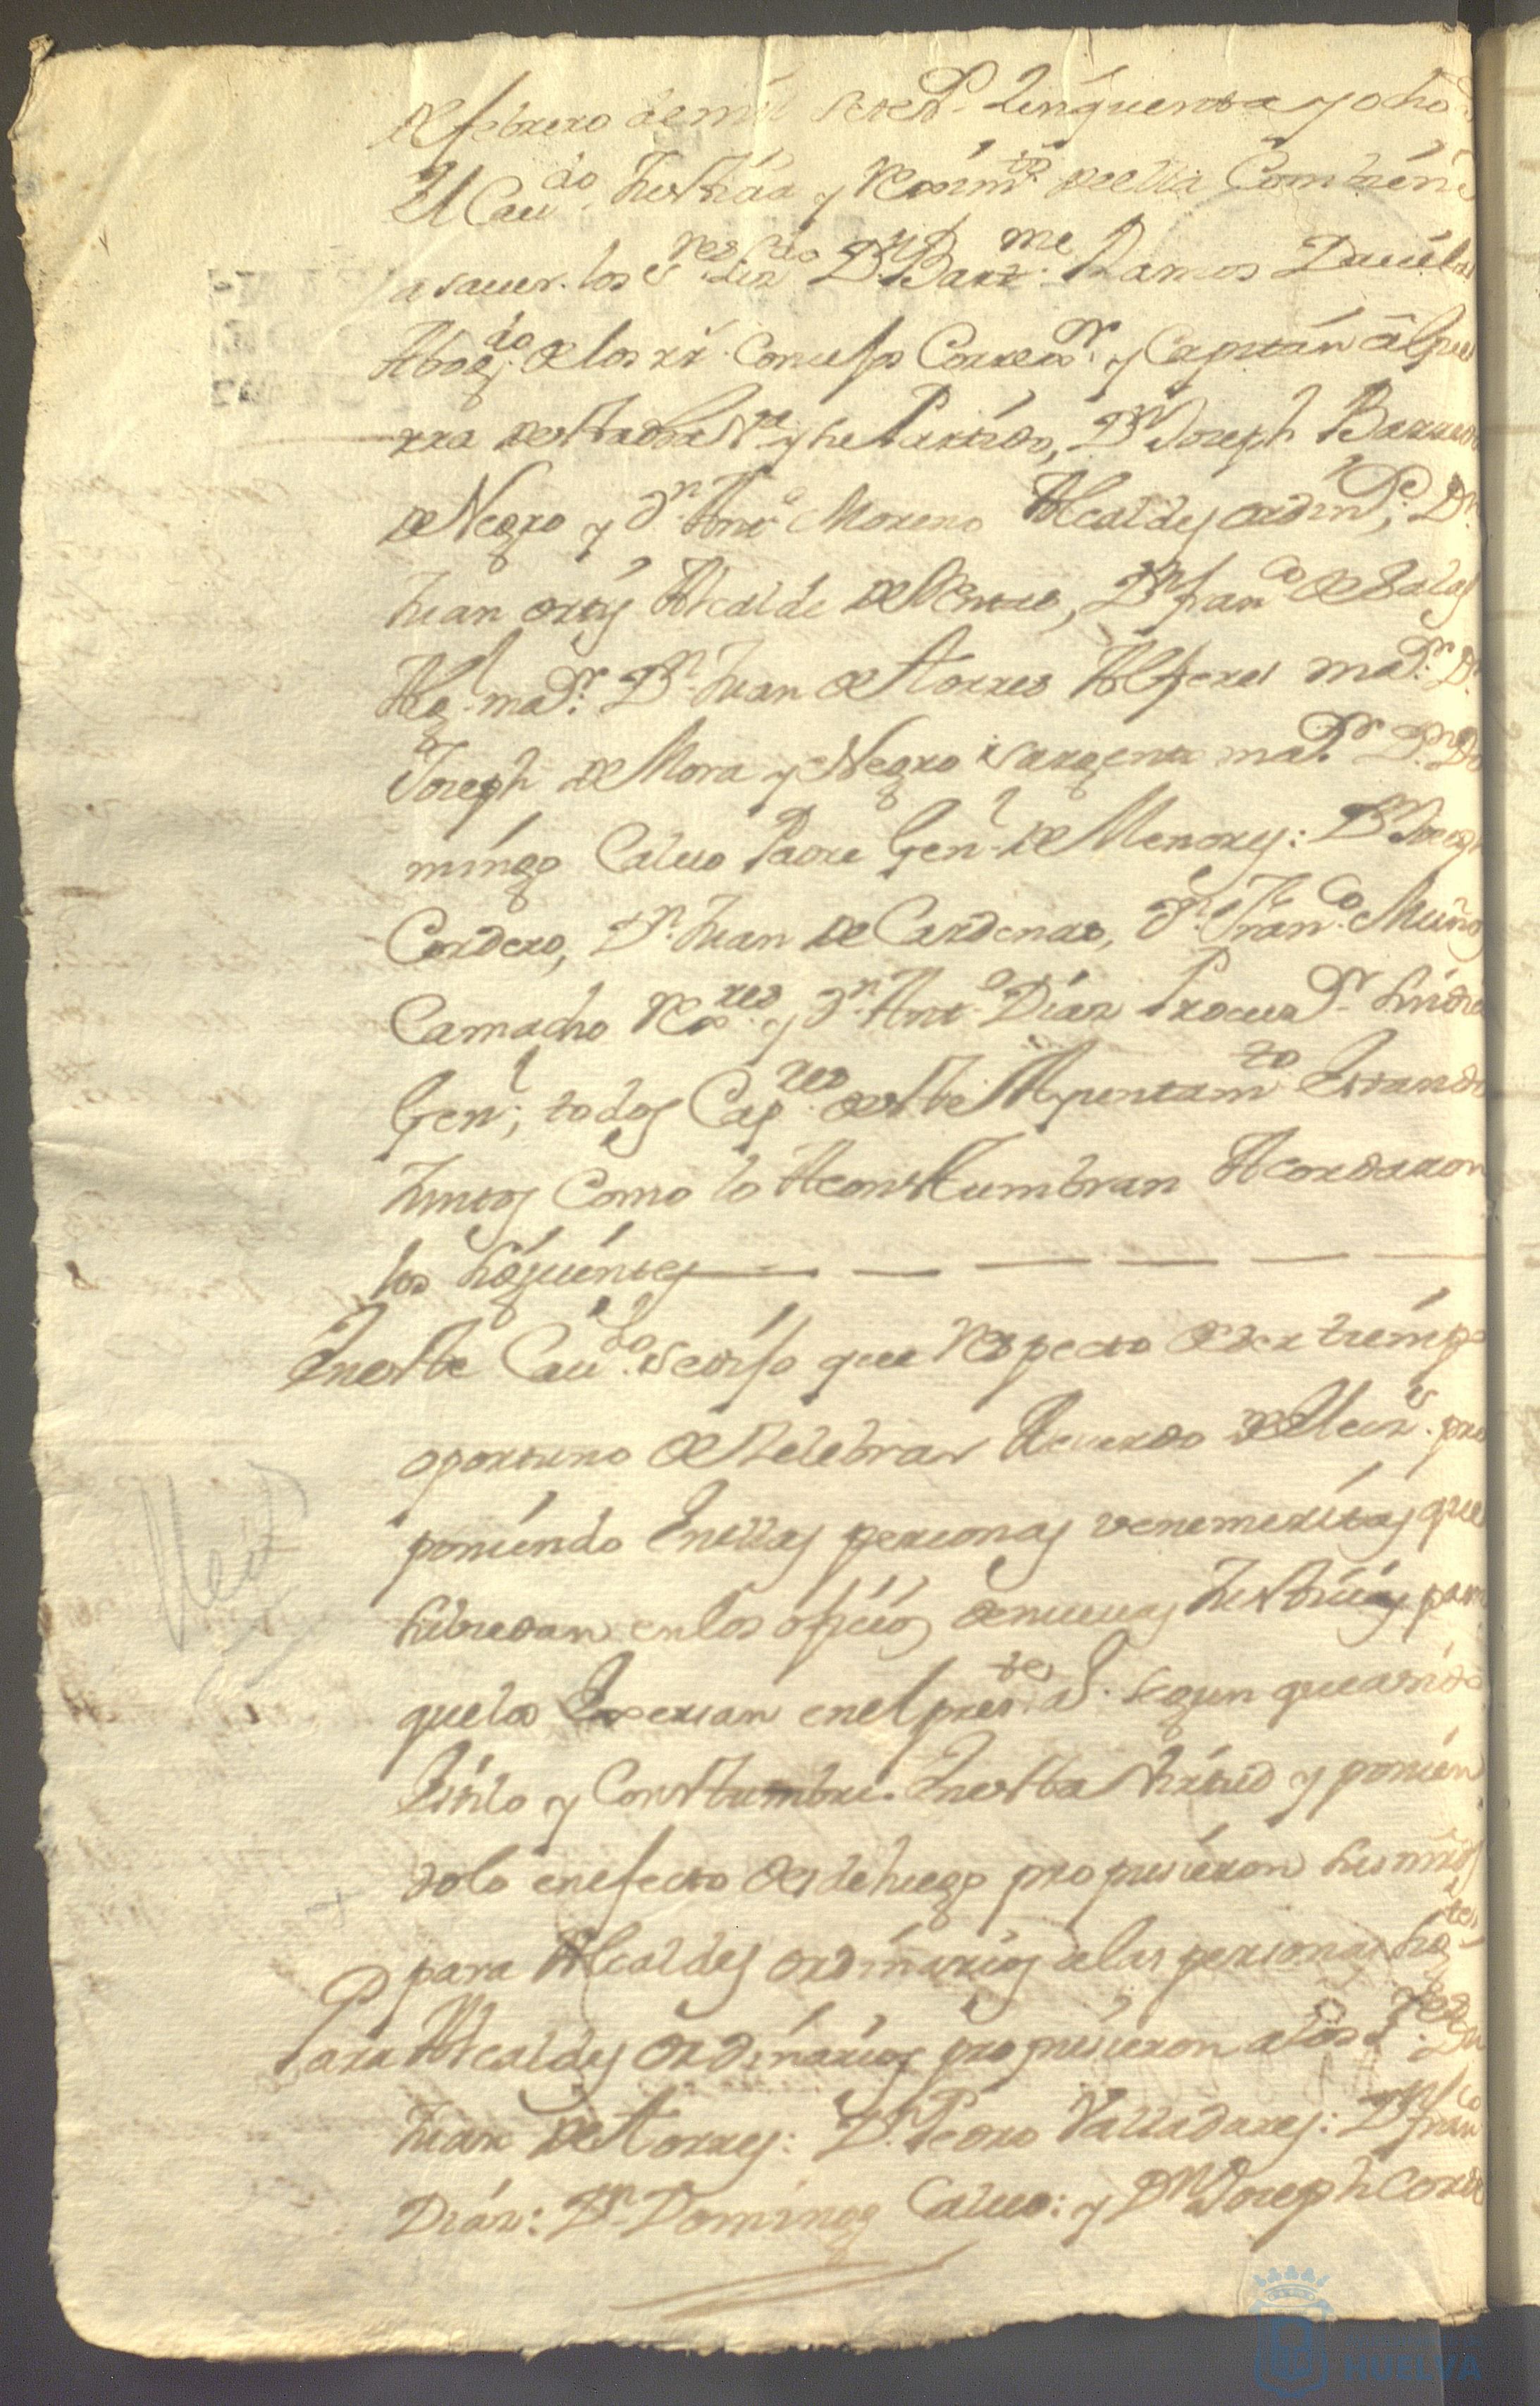 de febrero de mil setez.s Zinquenta y ocho
El Cau.do Justizia y Reximto. de ella Combiene
a sauer. los S.res Liz.do D.n Barz.me Ramos Dauila
Abog.do de los R.s Consejos Correx.or y Capitan a Guer
rra de esta dha V.a y su Partido, D.n Joseph Barreda
de Negro y D.n Ant.o Moreno Alcaldes ordin.s, D.n
Juan ortiz Alcalde de la , D.n Fran.co de Salas
Alg.l ma.or D.n Juan de Torres Alferes ma.or D.n
Joseph de Mora y Negro sargento ma.or D.n Do
mingo Caluo Padre Gen.l de Menores: D.n Joseph
Cordero, D.n Juan de Cardenas, D.n Fran.co Muños
Camacho Rex.res y D.n Ant.o Dias Procura.or Sindico
Gen.l; todos Cap.res de este Ayuntam.to Estando
Juntos Como lo Aconstumbran Acordaron
los siguientes
En este Cau.do se dijo que Respecto de ser tiempo
oportuno de Zelebrar Acuerdo de Elecz.s pro
poniendo En ellas personas venemeritas que
subzedan en los ofizios de nueuas Justizias para
que los Exersan en el pres.te a.o segun que a sido
Estilo y Constumbre. En esta Virtud y ponien
dolo en efecto desde luego propusieron sus mrds
para Alcaldes ordinarios a las personas sig.tes
Para Alcaldes ordinarios propusieron a los S.res D.n
Juan de Torres: D.n Pedro Valladares: D.n Fran.co
Dias: D.n Domingo Caluo: y D.n Joseph Corde
HUELVA